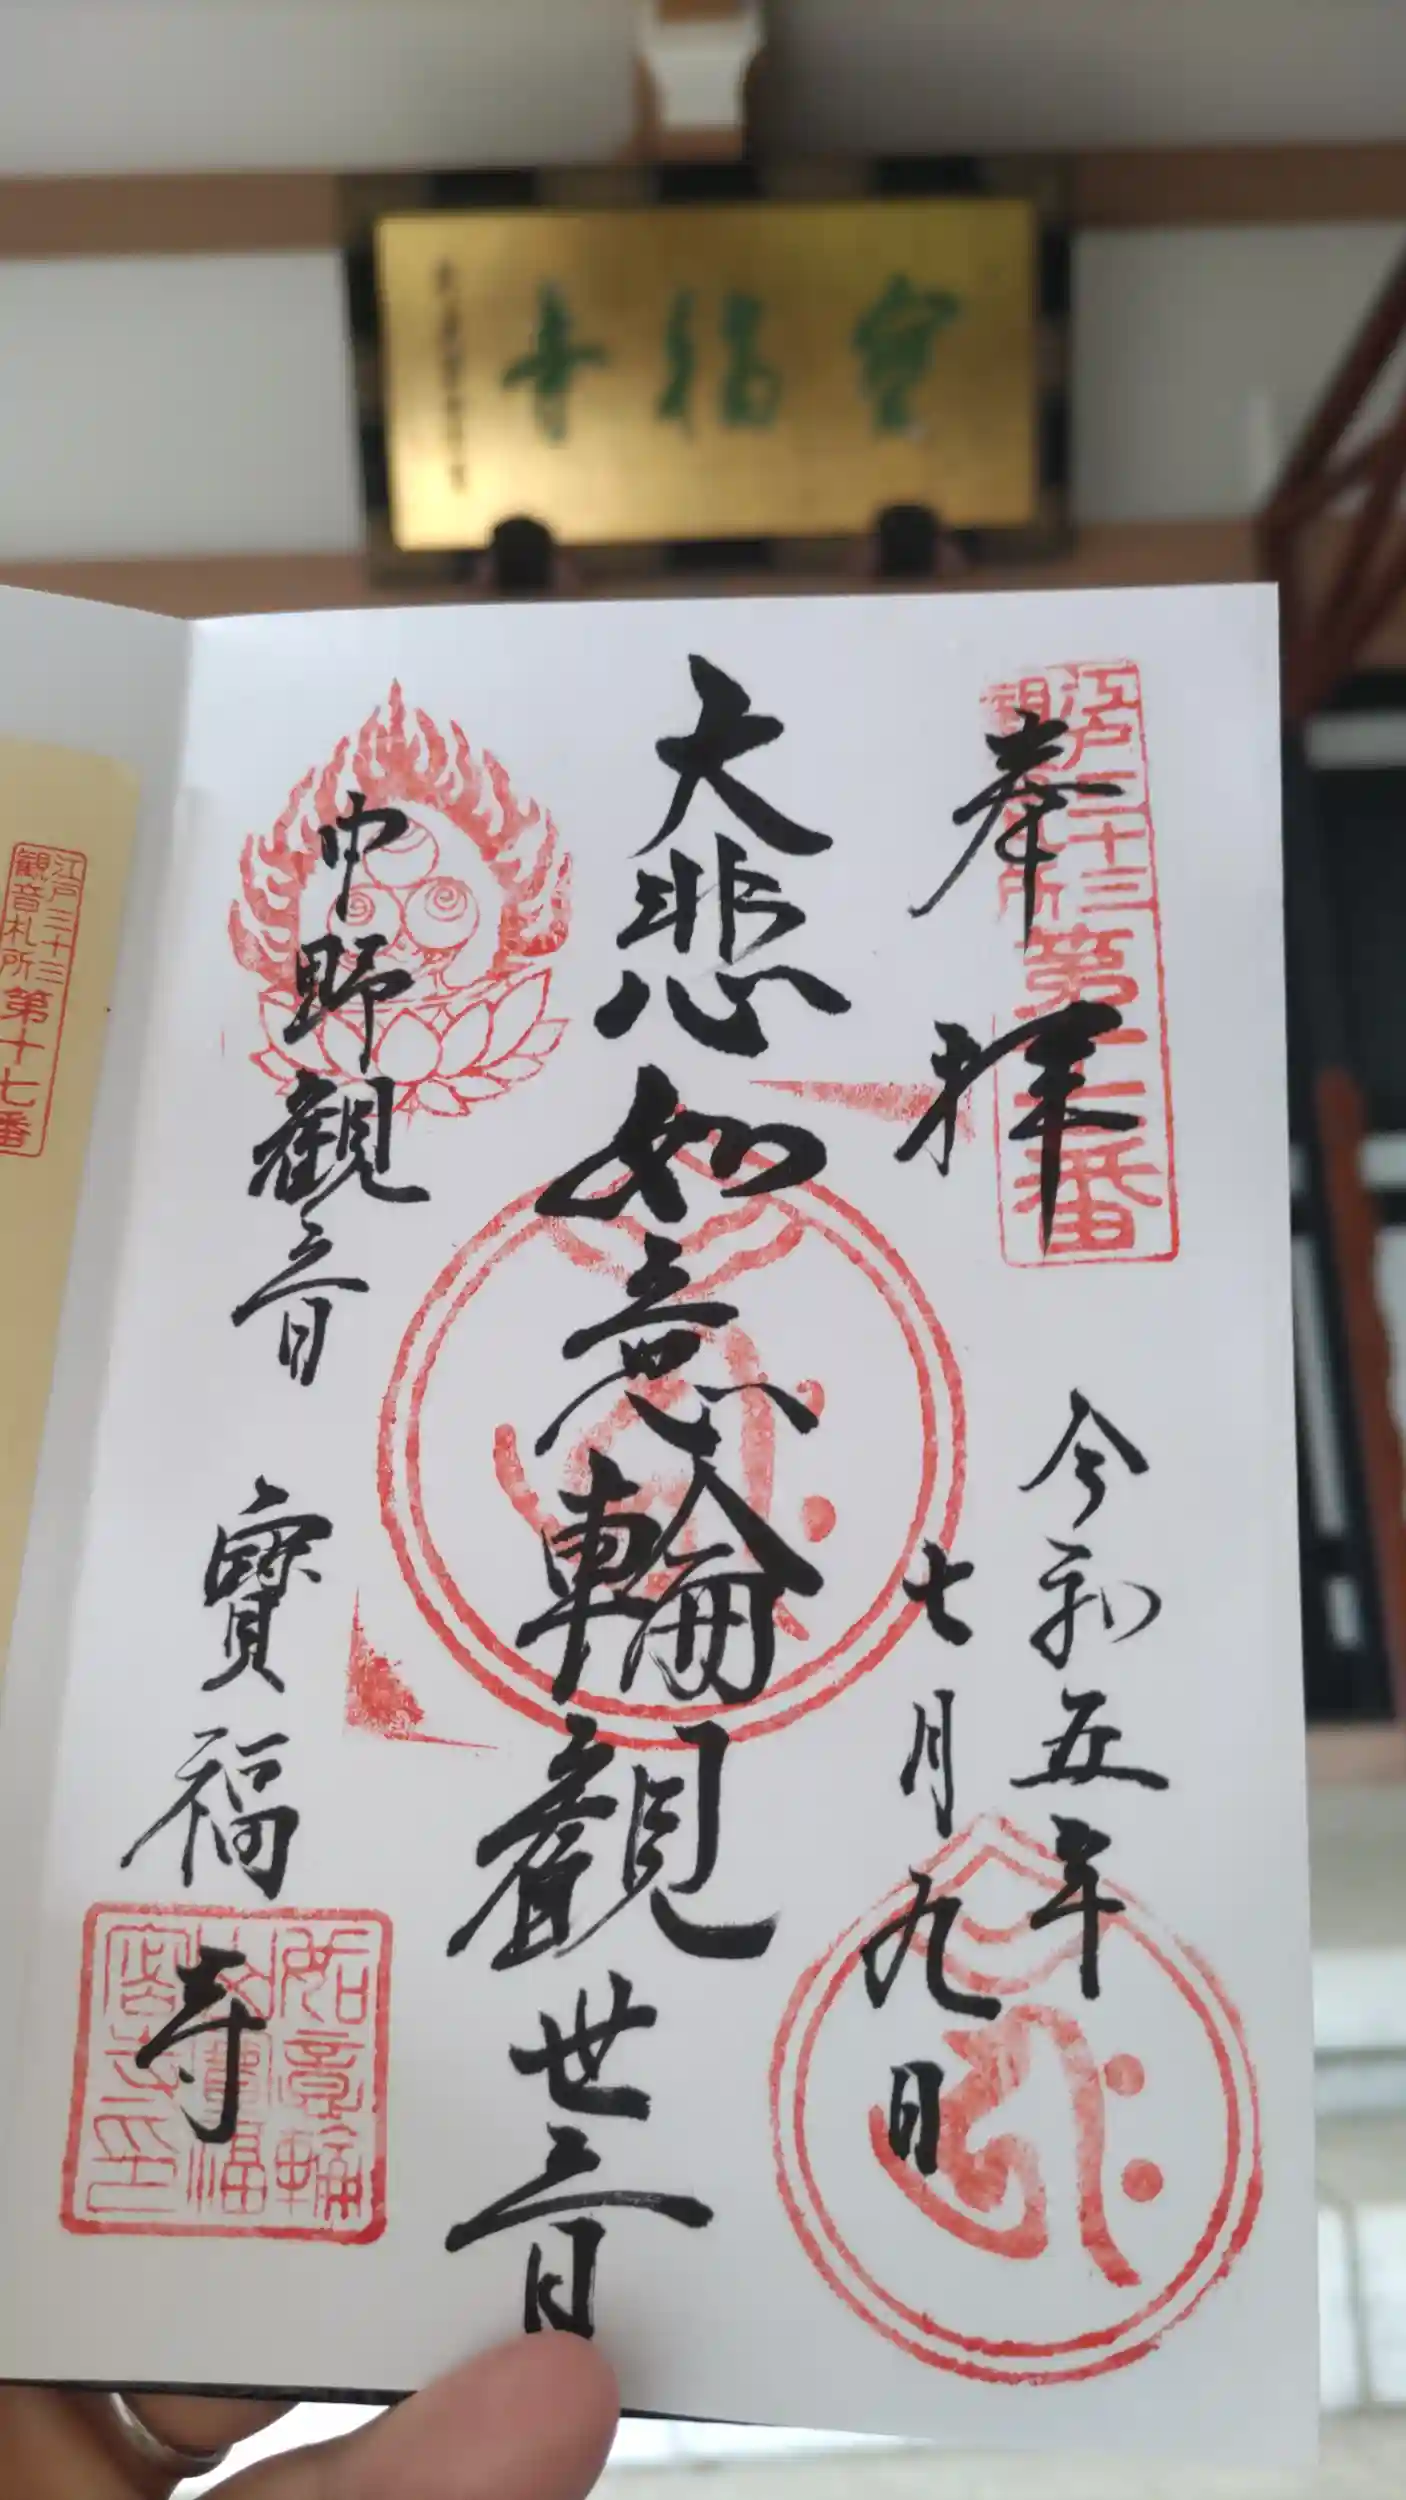 寶福寺
奉拝
江戸三十三
観音札所
第十二番
令和五年
七月九日
大悲如意輪観世音
中野観音
寶福寺
如意輪
寶福
江戸三十三
観音札所
第十七番